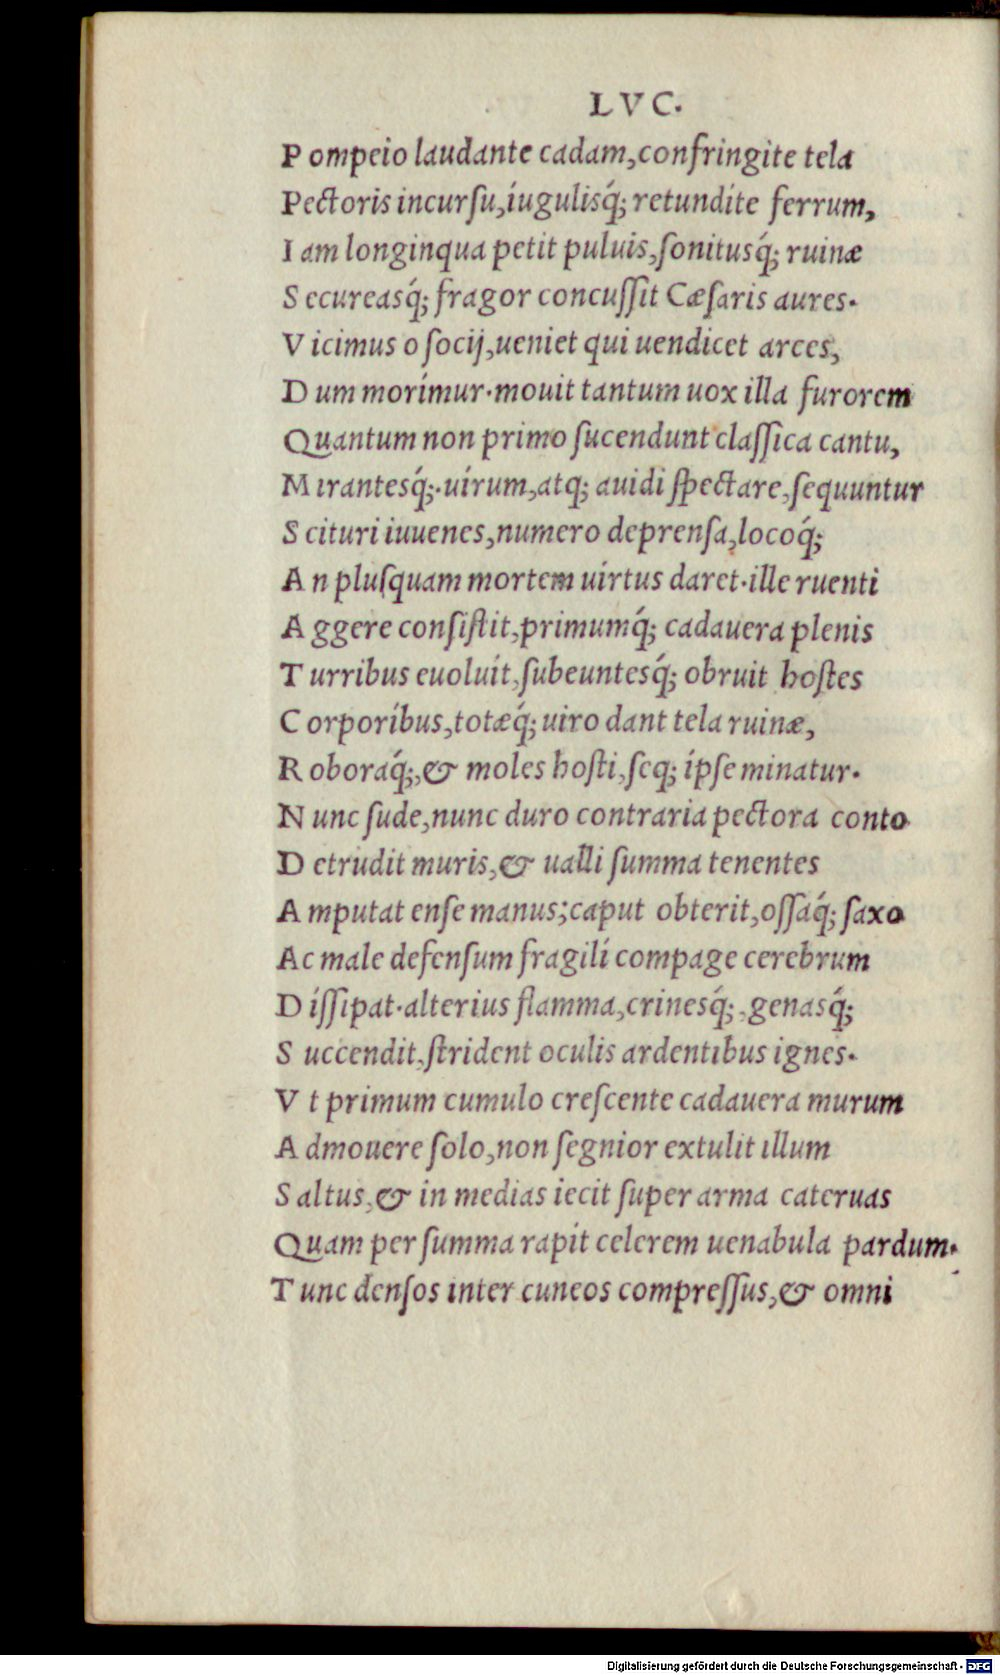 LVC.
P ompeio laudante cadam,confringite tela
Pectoris incurſu,iugulisq́; retundite ferrum,
I am longinqua petit puluis,ſonitusq́; ruinæ
S ecureasq́; fragor concuſſit Cæſaris aures.
V icimus o ſocij,ueniet qui uendicet arces,
D um morimur.mouit tantum uox illa furorem
Quantum non primo ſucendunt claſſica cantu,
M irantesq́;.uirum,atq; auidi ſpectare,ſequuntur
S cituri iuuenes,numero deprenſa,locoq́;
A n pluſquam mortem uirtus daret.ille ruenti
A ggere conſiſtit,primumq́; cadauera plenis
T urribus euoluit,ſubeuntesq́; obruit hoſtes
C orporibus,totæq́; uiro dant tela ruinæ,
R oboraq́;,& moles hoſti,ſeq; ipſe minatur.
N unc ſude,nunc duro contraria pectora conto
D etrudit muris,& ualli ſumma tenentes
A mputat enſe manus;caput obterit,oſſaq́; ſaxo
Ac male defenſum fragili compage cerebrum
D iſſipat.alterius flamma,crinesq́;,genasq́;
S uccendit,ſtrident oculis ardentibus ignes.
V t primum cumulo creſcente cadauera murum
A dmouere ſolo,non ſegnior extulit illum
S altus,& in medias iecit ſuper arma cateruas
Quam per ſumma rapit celerem uenabula pardum.
T unc denſos inter cuneos compreſſus,& omni
Digitalisierung gefördert durch die Deutsche Forschungsgemeinschaft - DFG